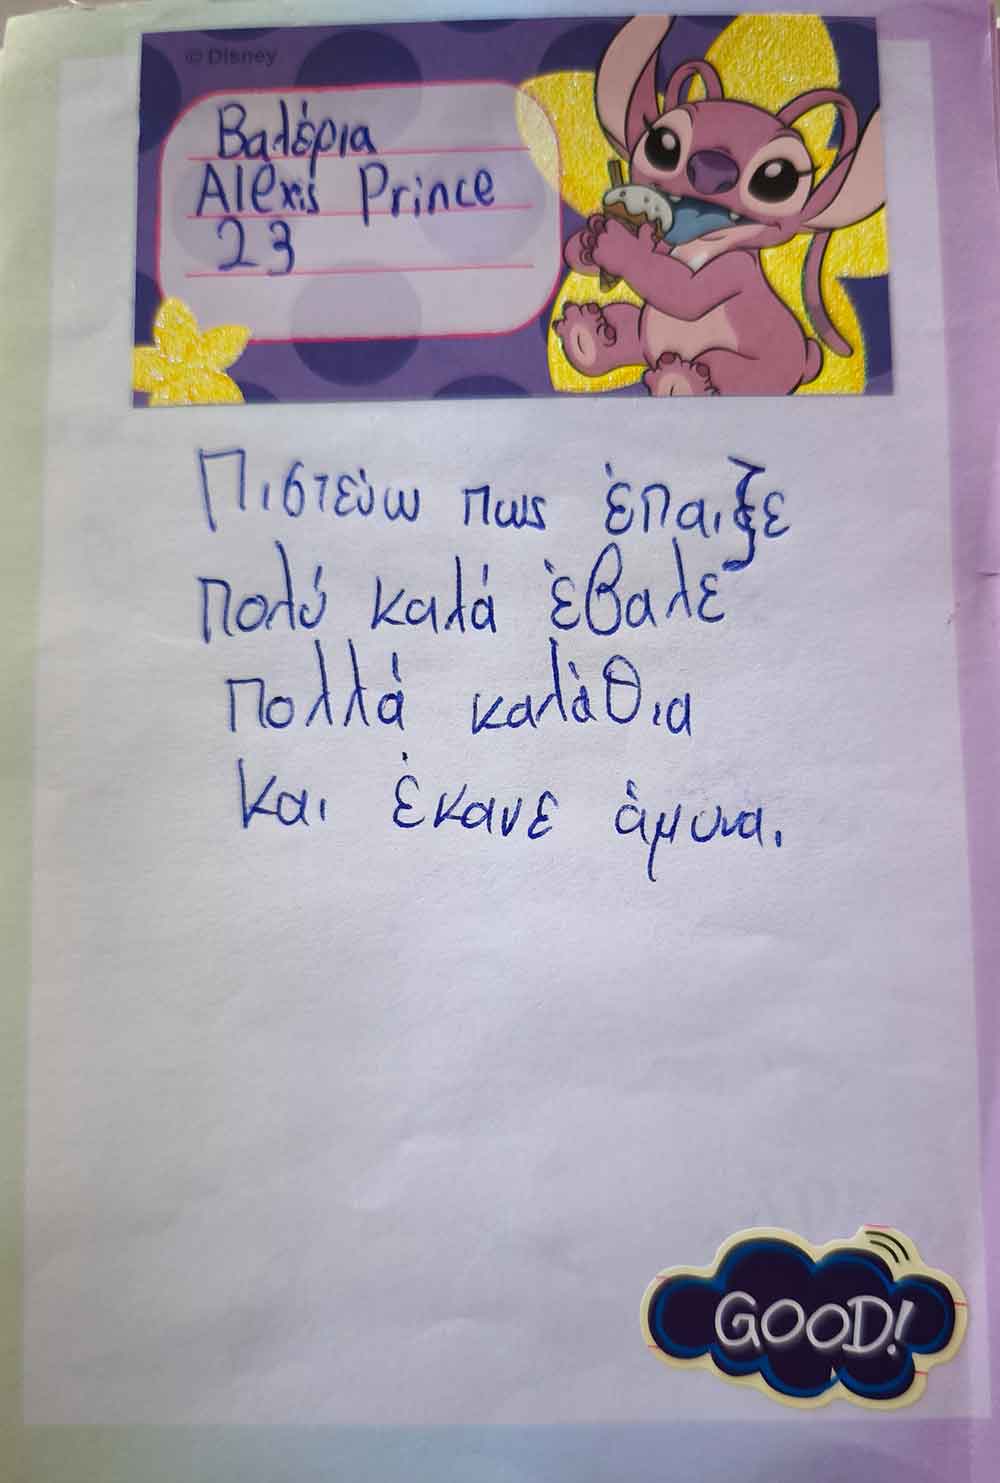 © Disney
Βαλέρια
Alexis Prince
23
Πιστεύω πως έπαιξε
πολύ καλά έβαλε
πολλά καλάθια
και έκανε άμυνα.
GOOD!